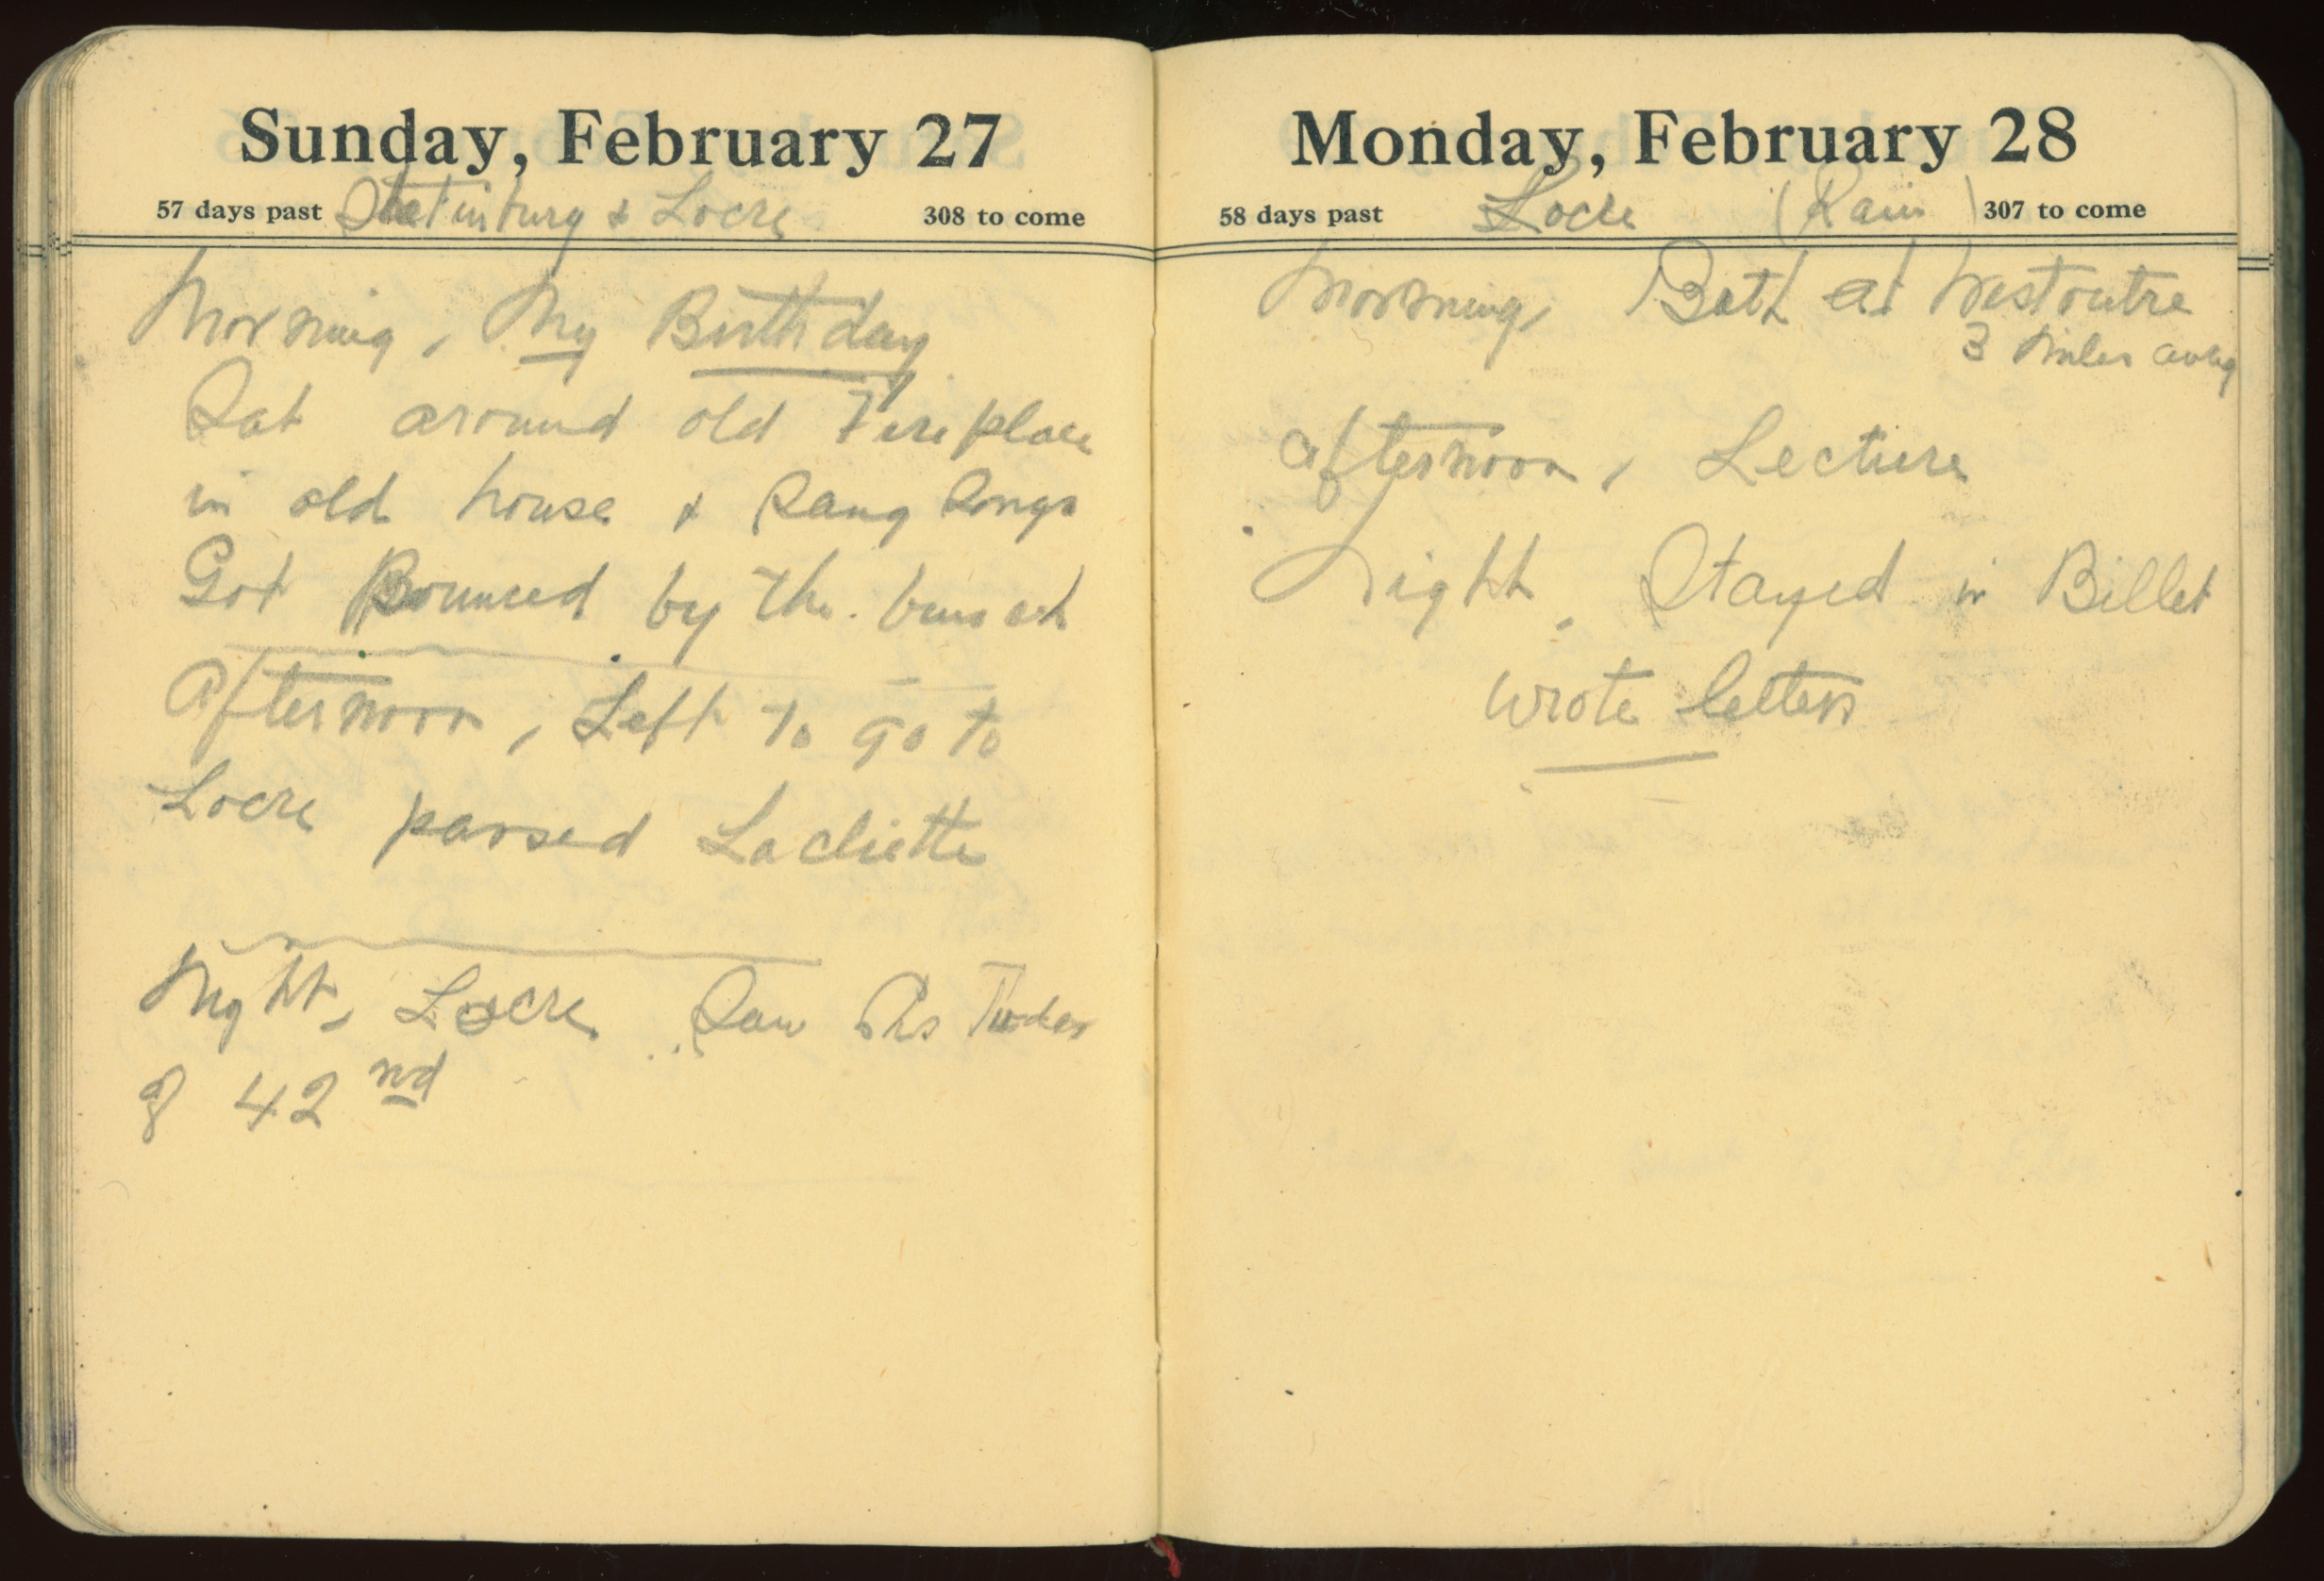 Sunday, February 27
57 days past & Locre 308 to come
Morning, My Birthday
Sat around old Fireplace
in old house & Sang Songs
Got Bounced by the bunch
Afternoon, Left to go to
Locre passed Laclictte
Night, Locre Saw
of 42nd
Monday, February 28
58 days past Locre (Rain) 307 to come
Morning, Bath at Westoutre
3 Miles away
afternoon, Lecture
Night, Stayed in Billet
wrote letters